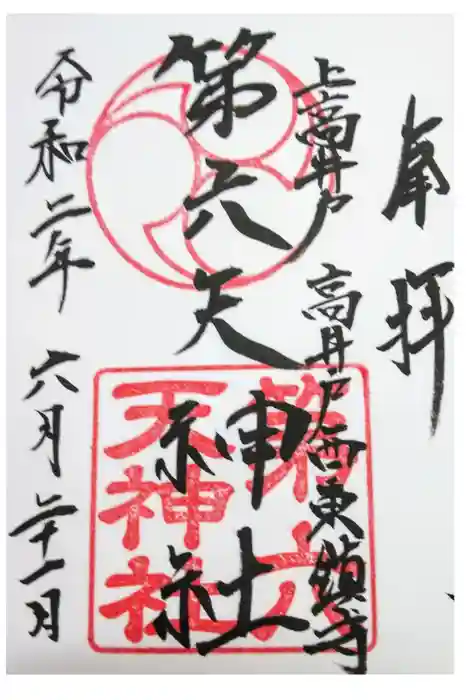 奉拝
上高井戸
高井戸西東鎮守
第六天神社
令和二年 六月二十一月
第六
天神社